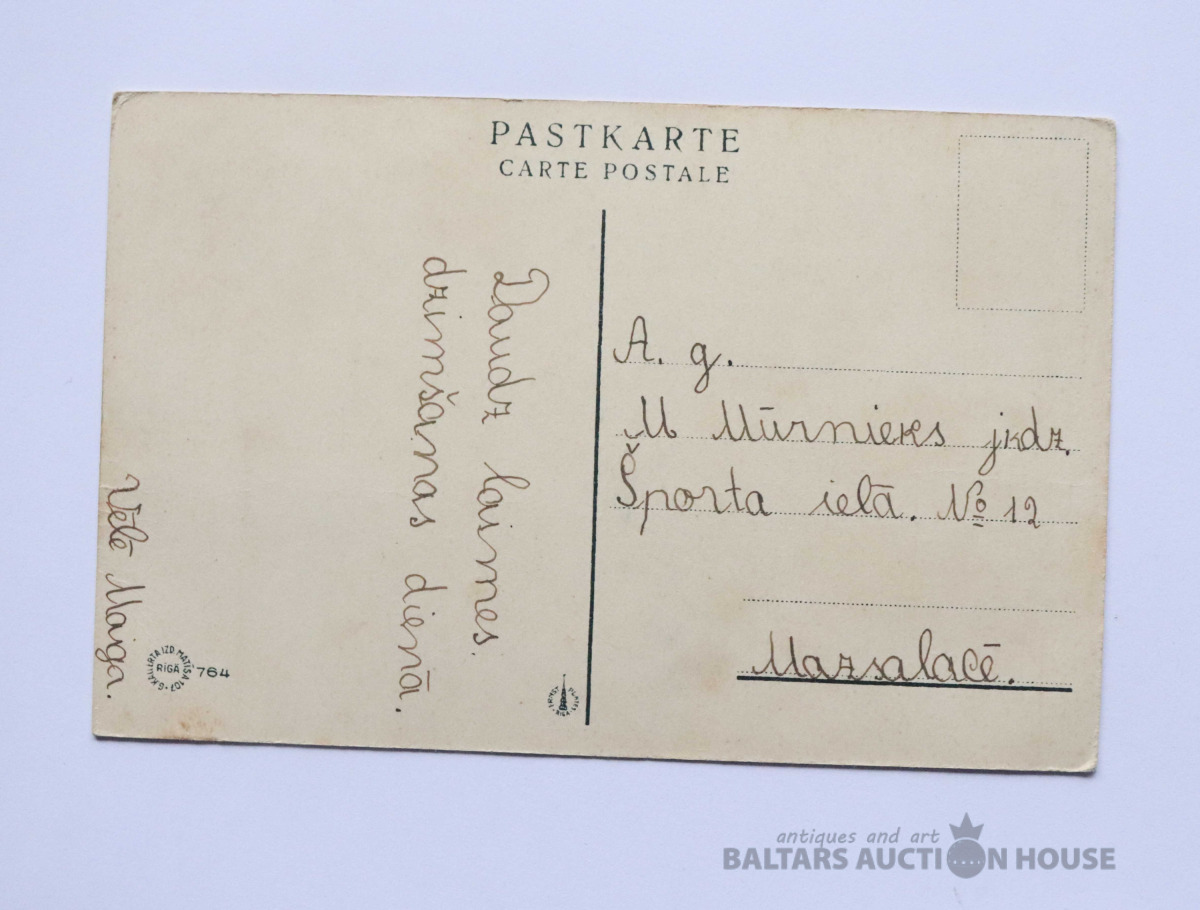 PASTKARTE
CARTE POSTALE
Daudz laimes
dzimšanas dienā.
Vēlē Maiga.
G. KALLERTA IZD. MATĪSA 107
RĪGĀ
764
A. g.
M Mūrnieks jkdz.
Športa ielā. No 12
Mazsalacē.
antiques and art
BALTARS AUCTION HOUSE